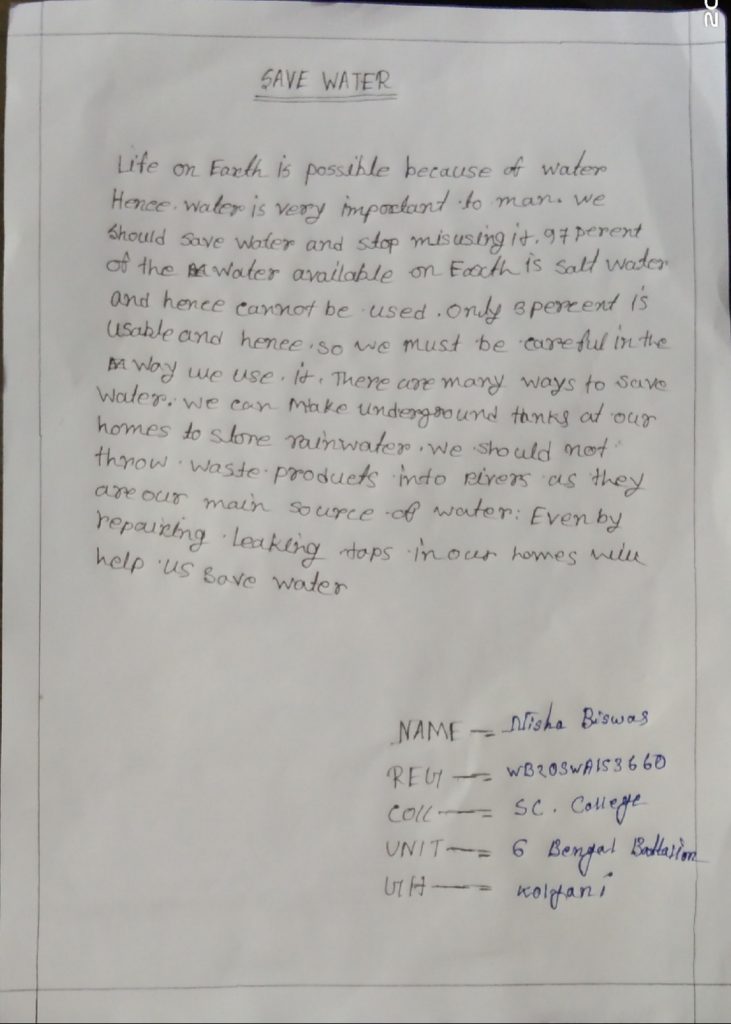 SAVE WATER
Life on Earth is possible because of water
Hence. water is very important to man. we
should save water and stop misusing it. 97 perent
of the water available on Earth is salt water
and hence cannot be used. only 3 percent is
usable and hence. so we must be careful in the
way we use. it. There are many ways to save
water. we can make underground tanks at our
homes to store rainwater. we should not
throw waste products into rivers as they
are our main source of water: Even by
repairing leaking taps in our homes will
help us save water
NAME - Nisha Biswas
REG - WB20SWA153660
COLL - SC. College
UNIT - 6 Bengal Battalion
GH - Kolyani